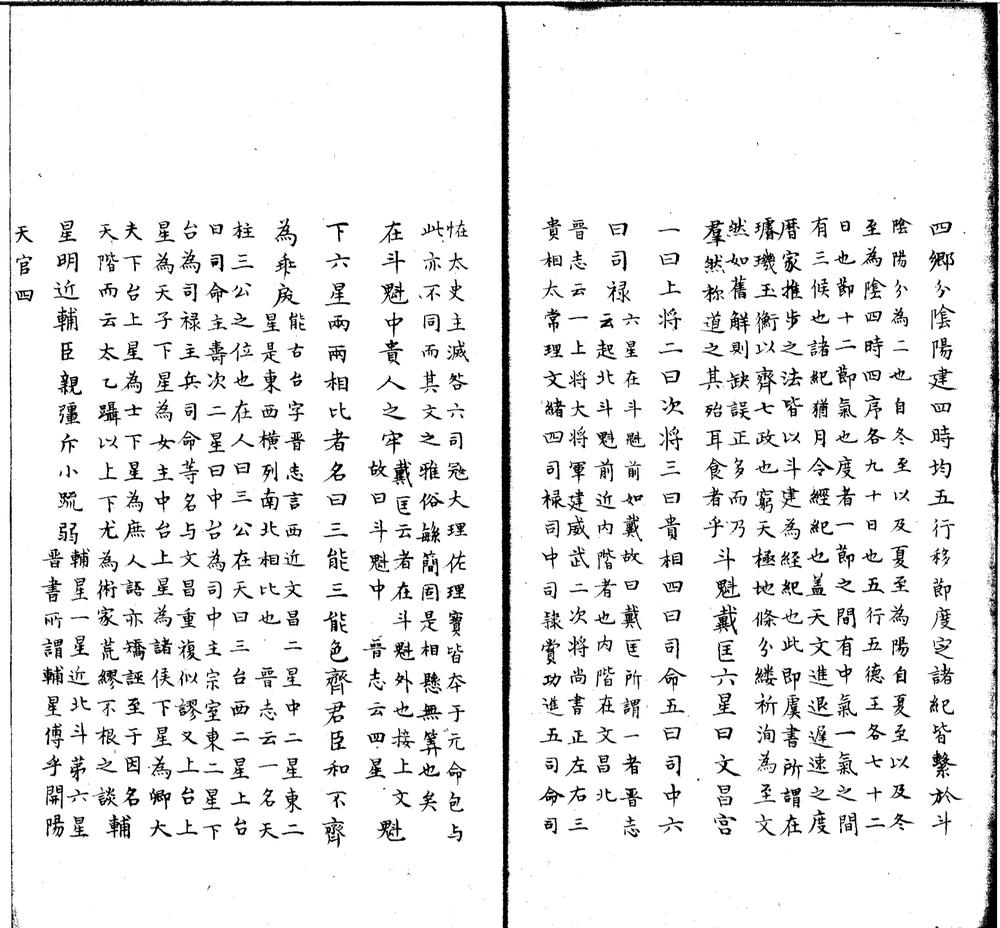 四鄉分陰陽建四時均五行移節度定諸紀皆繫於斗
陰陽分為二也自冬至以及夏至為陽自夏至以及冬
至為陰四時四序各九十日也五行五德王各七十二
日也節十二節氣也度者一節之間有中氣一氣之間
有三候也諸紀猶月令經紀也盖天文進退遲速之度
暦家推步之法皆以斗建為經紀也此即虞書所謂在
璿璣玉衡以齊七政也窮天極地條分縷析洵為至文
然如舊解則缺誤正多而乃
羣然称道之其殆耳食者乎斗魁戴匡六星曰文昌宮
一曰上将二曰次将三曰貴相四曰司命五曰司中六
曰司禄六星在斗魁前如戴故曰戴匡所謂一者晋志
云起北斗魁前近内階者也内階在文昌北
晉志云一上将大将軍建威武二次将尚書正左右三
貴相太常理文緒四司禄司中司隸賞功進五司命司
恠太史主滅咎六司寇大理佐理寶皆夲于元命包与
此亦不同而其文之雅俗緐簡固是相懸無筭也矣
在斗魁中貴人之牢戴匡云者在斗魁外也接上文
故曰斗魁中 晉志云四星魁
下六星兩兩相比者名曰三能三能色齊君臣和不齊
為乖戾能古台字晋志言西近文昌二星中二星東二
星是東西橫列南北相比也 晋志云一名天
柱三公之位也在人曰三公在天曰三台西二星上台
曰司命主壽次二星曰中台為司中主宗室東二星下
台為司禄主兵司命等名与文昌重複似謬又上台上
星為天子下星為女主中台上星為諸侯下星為卿大
夫下台上星為士下星為庶人語亦矯誣至于因名
天階而云太乙躡以上下尤為術家荒繆不根之談輔
星明近輔臣親彊斥小疏弱輔星一星近北斗苐六星
晋書所謂輔星傅乎開陽
天官四